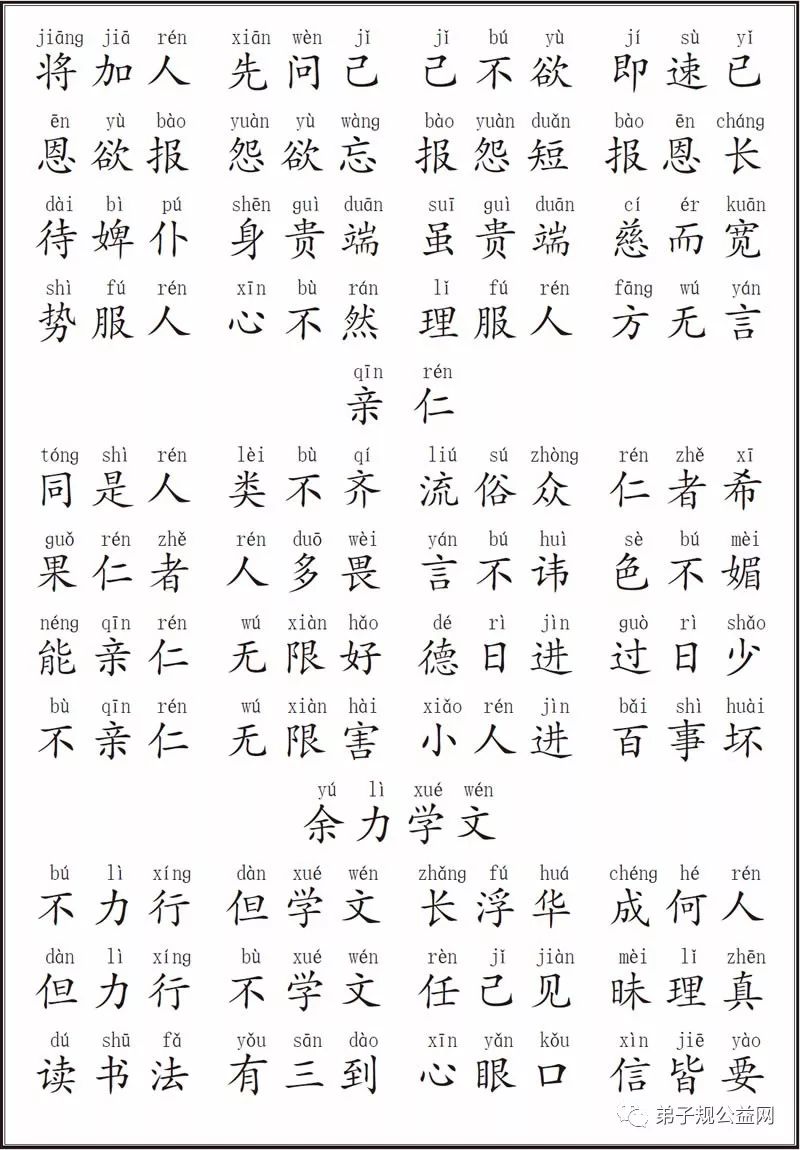 jiāng jiā rén xiān wèn jǐ jǐ bú yù jí sù yǐ
将加人 先问己 己不欲 即速已
ēn yù bào yuàn yù wàng bào yuàn duǎn bào ēn cháng
恩欲报 怨欲忘 报怨短 报恩长
dài bì pú shēn guì duān suī guì duān cí ér kuān
待婢仆 身贵端 虽贵端 慈而宽
shì fú rén xīn bù rán lǐ fú rén fāng wú yán
势服人 心不然 理服人 方无言
qīn rén
亲仁
tóng shì rén lèi bù qí liú sú zhòng rén zhě xī
同是人 类不齐 流俗众 仁者希
guǒ rén zhě rén duō wèi yán bú huì sè bú mèi
果仁者 人多畏 言不讳 色不媚
néng qīn rén wú xiàn hǎo dé rì jìn guò rì shǎo
能亲仁 无限好 德日进 过日少
bù qīn rén wú xiàn hài xiǎo rén jìn bǎi shì huài
不亲仁 无限害 小人进 百事坏
yú lì xué wén
余力学文
bú lì xíng dàn xué wén zhǎng fú huá chéng hé rén
不力行 但学文 长浮华 成何人
dàn lì xíng bù xué wén rèn jǐ jiàn mèi lǐ zhēn
但力行 不学文 任己见 昧理真
dú shū fǎ yǒu sān dào xīn yǎn kǒu xìn jiē yào
读书法 有三到 心眼口 信皆要
弟子规公益网